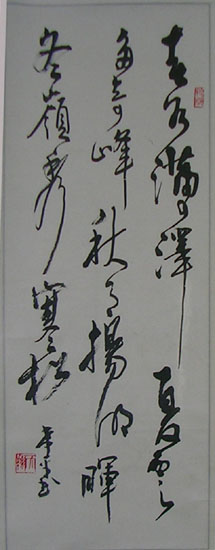 春水滿四澤夏雲
多奇峰秋月揚明暉
冬嶺秀寒松